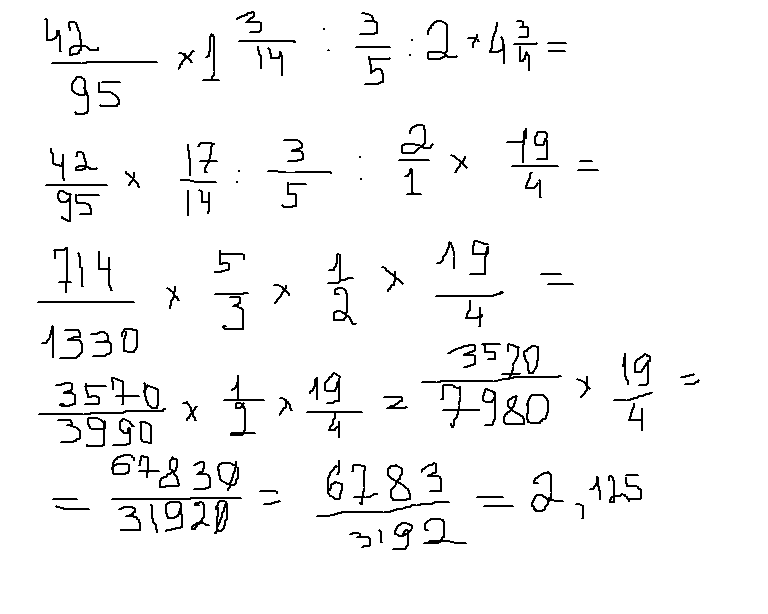 42/95 × 1 3/14 : 3/5 : 2 * 4 3/4 =
42/95 × 17/14 : 3/5 : 2/1 × 19/4 =
714/1330 × 5/3 × 1/2 × 19/4 =
3570/3990 × 1/2 × 19/4 = 3570/7980 × 19/4 =
= 67830/31920 = 6783/3192 = 2,125